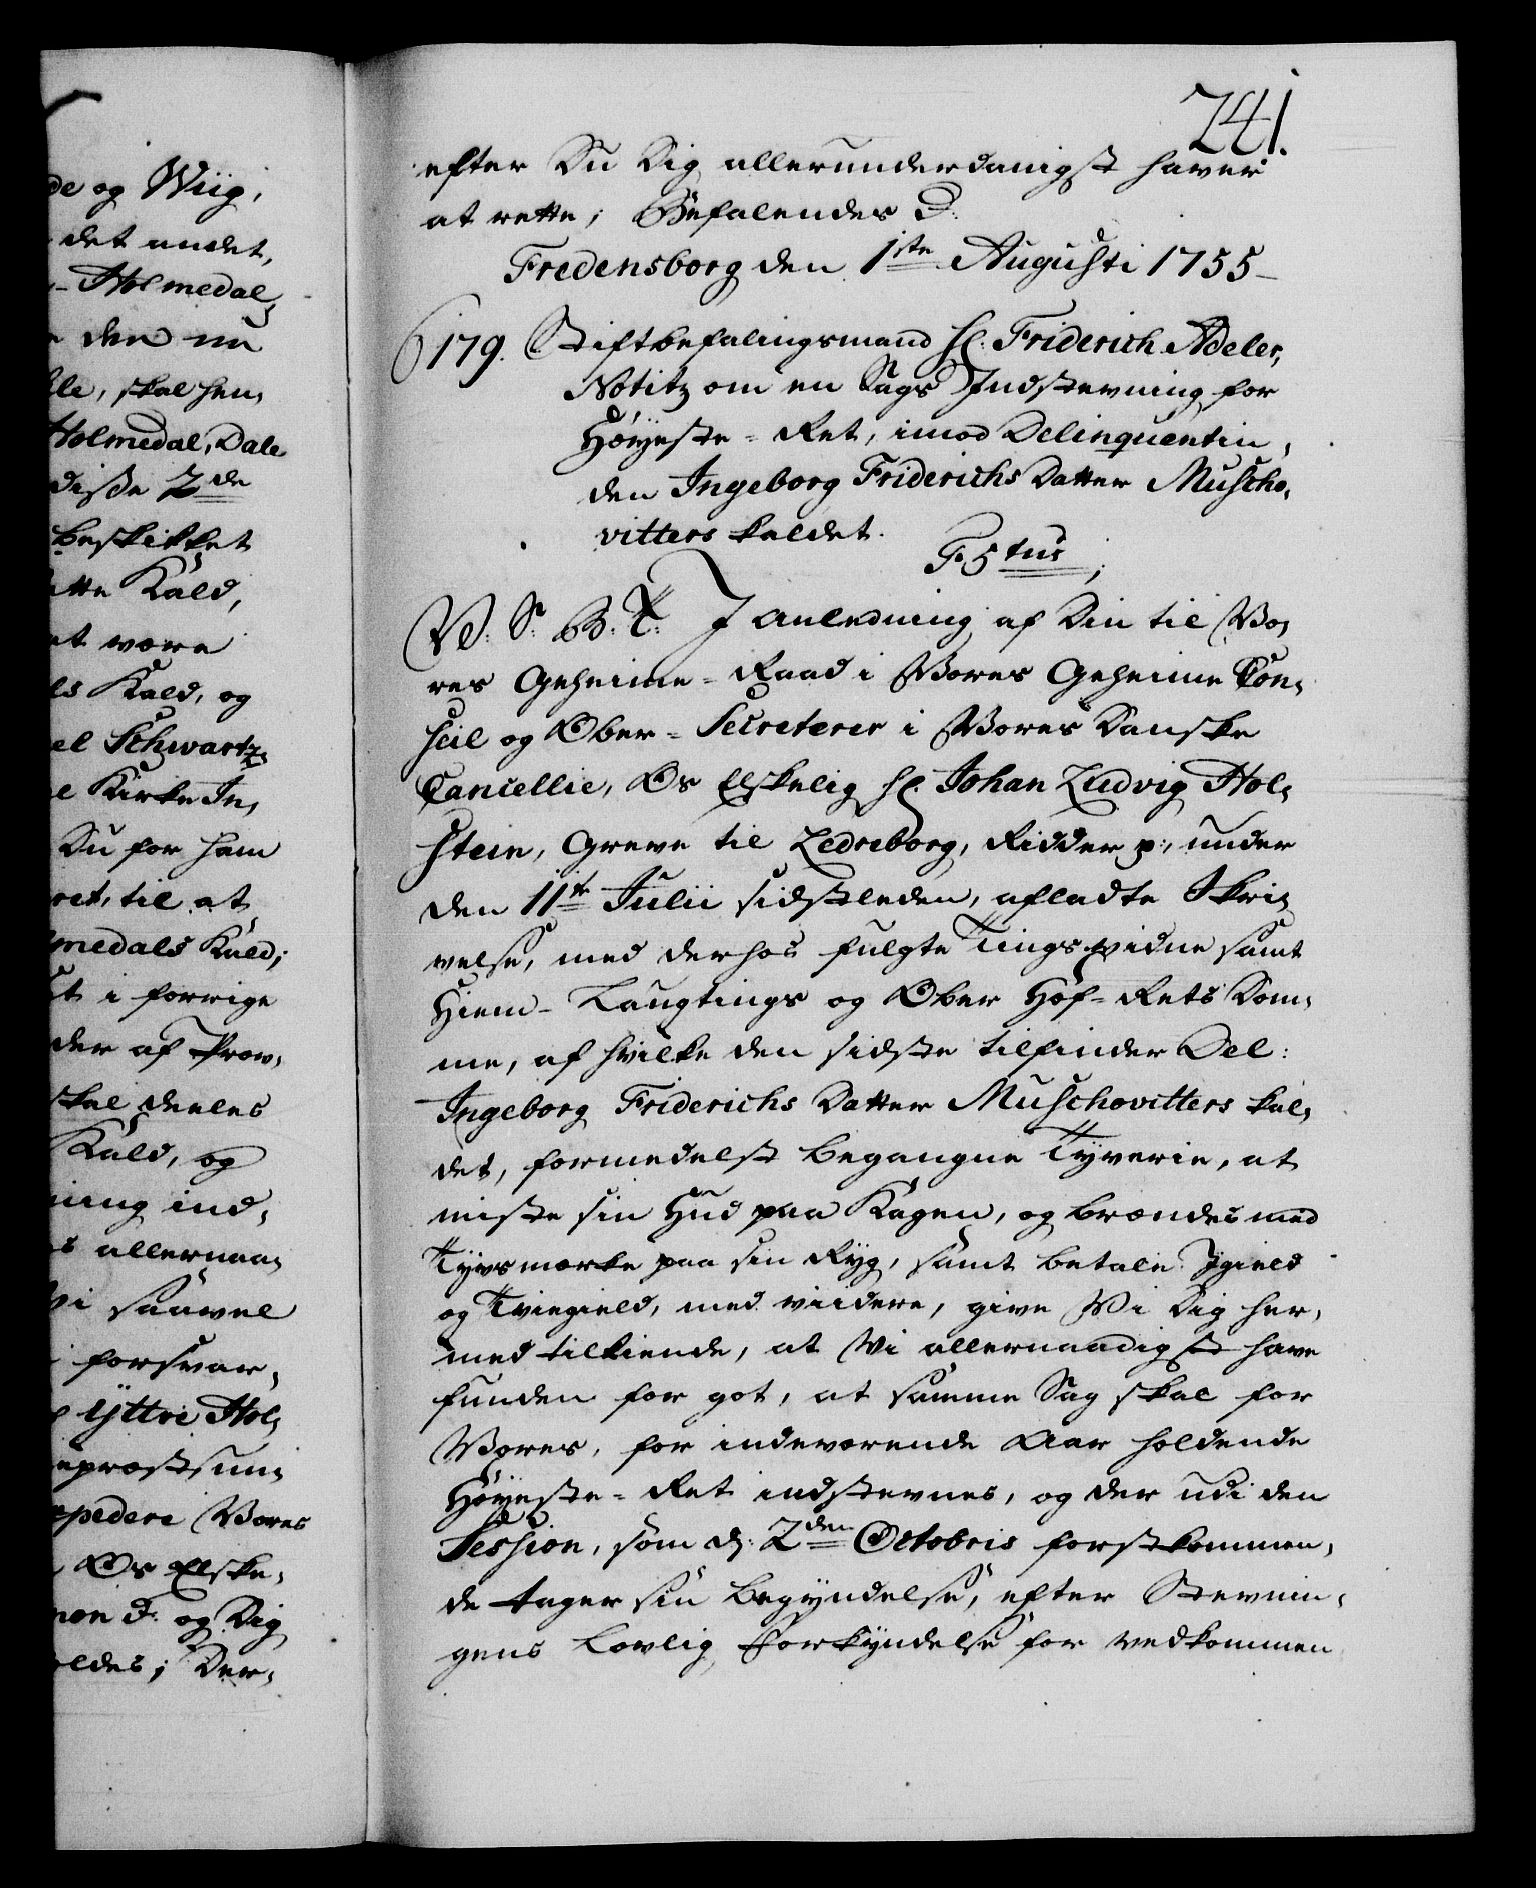 241.
de og Wiig,
det andet,
Holmedal,
den nu
le, skal hen,
Holmedal, Dale
disse 2de
beskikket
tte Kald,
et være
ls Kald, og
el Schwartz,
e Kirke In,
Du for ham
ret, til at
medals Kald;
t i forrige
der af Prov,
skal deeles
Kald, og
ning ind,
s allernaa,
Vi saavel
forsvar,
Ÿttre Hol,
epræst sum,
pedere Vores
Os Elske,
og Dig
oldes; Der,
efter Du Dig allerunderdanigst haver
at rette; Befalendes D:
Fredensborg den 1ste Augusti 1755
179. Stiftbefalingsmand Hr: Friderich Adeler,
Notitz om en Sags Indstevning for
Høyeste-Ret, imod Delinquentin,
den Ingeborg Friderichs Datter Muscho,
vitters kaldet.
F. 5tus;
V: S: G: T: I Anledning af Din til Vo,
res Geheime-Raad i Vores Geheime Con,
seil og Ober-Secreterer i Vores Danske
Cancellie, Os Elskelig Hr: Johan Ludvig Hol,
stein, Greve til Ledreborg, Ridder p:, under
den 11te Julii sidstleden, afladte Skri,
velse, med derhos fulgte Tingsvidne samt
Hiem-Laugtings og Ober Hof-Rets Dom,
me, af hvilke den sidste tilfinder Del:
Ingeborg Friderichs Datter Muschovitters kal,
det, formedelst begangne Tyverie, at
miste sin Hud paa Kagen, og brændes med
Tyvsmærke paa sin Ryg, samt betale Igield
og Tviegield, med viidere, give Vi Dig her,
med tilkiende, at Vi allernaadigst have
funden for got, at samme Sag skal for
Vores, for indeværende Aar holdende
Høyeste-Ret indstevnes, og der udi den
Session, som d: 2den Octobris førstkommen,
de tager sin Begyndelse, efter Stevnin,
gens lovlig Forkyndelse for vedkommen